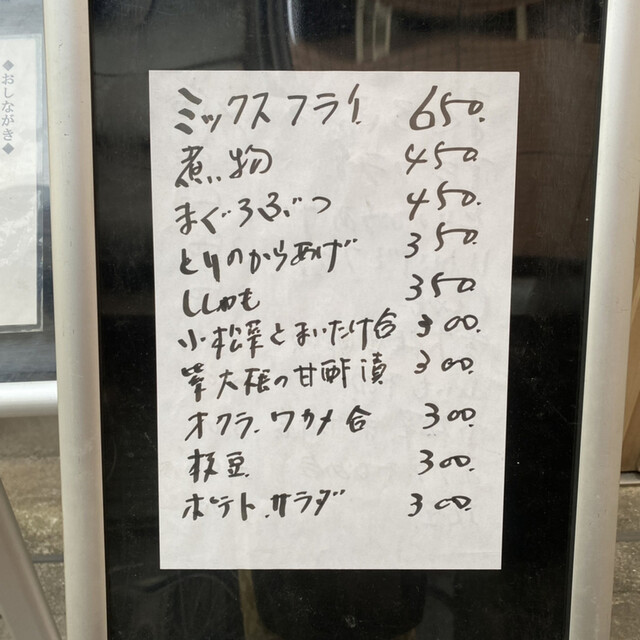 ◆おしながき◆
ミックスフライ 650.
煮物 450.
まぐろぶつ 450.
とりのからあげ 350.
ししゃも 350.
小松菜とまいたけ合 300.
紫大根の甘酢漬 300.
オクラ.ワカメ合 300.
枝豆 300.
ポテト.サラダ 300.